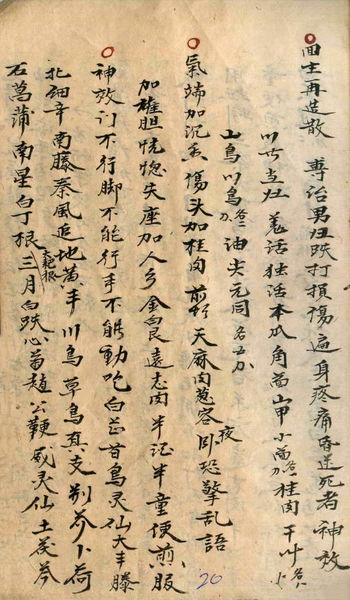 回生再造散 專治男妇跌打損傷遍身疼痛昏迷死者神效
川芎 当归 羌活 独活 木瓜 角茴 山甲 小茴 桂肉 干叶
山烏 川烏 油尖 元同 各五刀
氣喘加沉香 傷头加桂肉 前彩 天麻 肉蓯容 夜卧恐擎乱語
加雄胆 恍惚失座加人参 金艮 遠志肉 半酒半童便煎服
神效 订不行脚不能行手不能動吃 白芷 首烏 灵仙 大丰膝
北细辛 南藤 秦風 追地黄 丰 川烏 草烏 真支 别芥 卜荷
石菖蒲 南星 白丁根 三月白跌心 苗趙公鞭 威灵仙 土茯苓
20